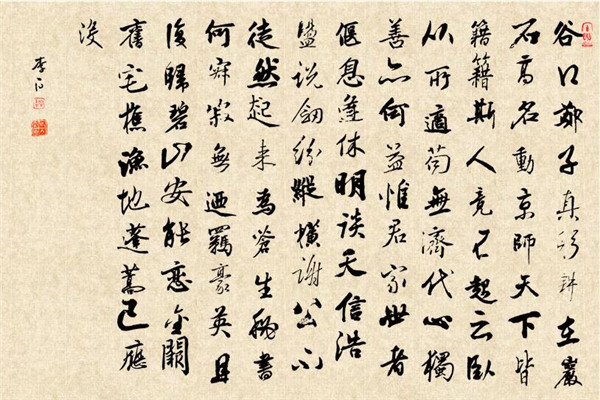 谷口鄭子真躬耕在巖
石高名動京師天下皆
籍籍斯人竟不起云臥
從所適苟無濟代心獨
善亦何益惟君家世者
偃息逢休明談天信浩
盪説劒紛縱橫謝公不
徒然起来為蒼生秘書
何寂寂無迺羈豪英且
復歸碧山安能戀金闕
舊宅樵漁地蓬蒿已應
没
李白